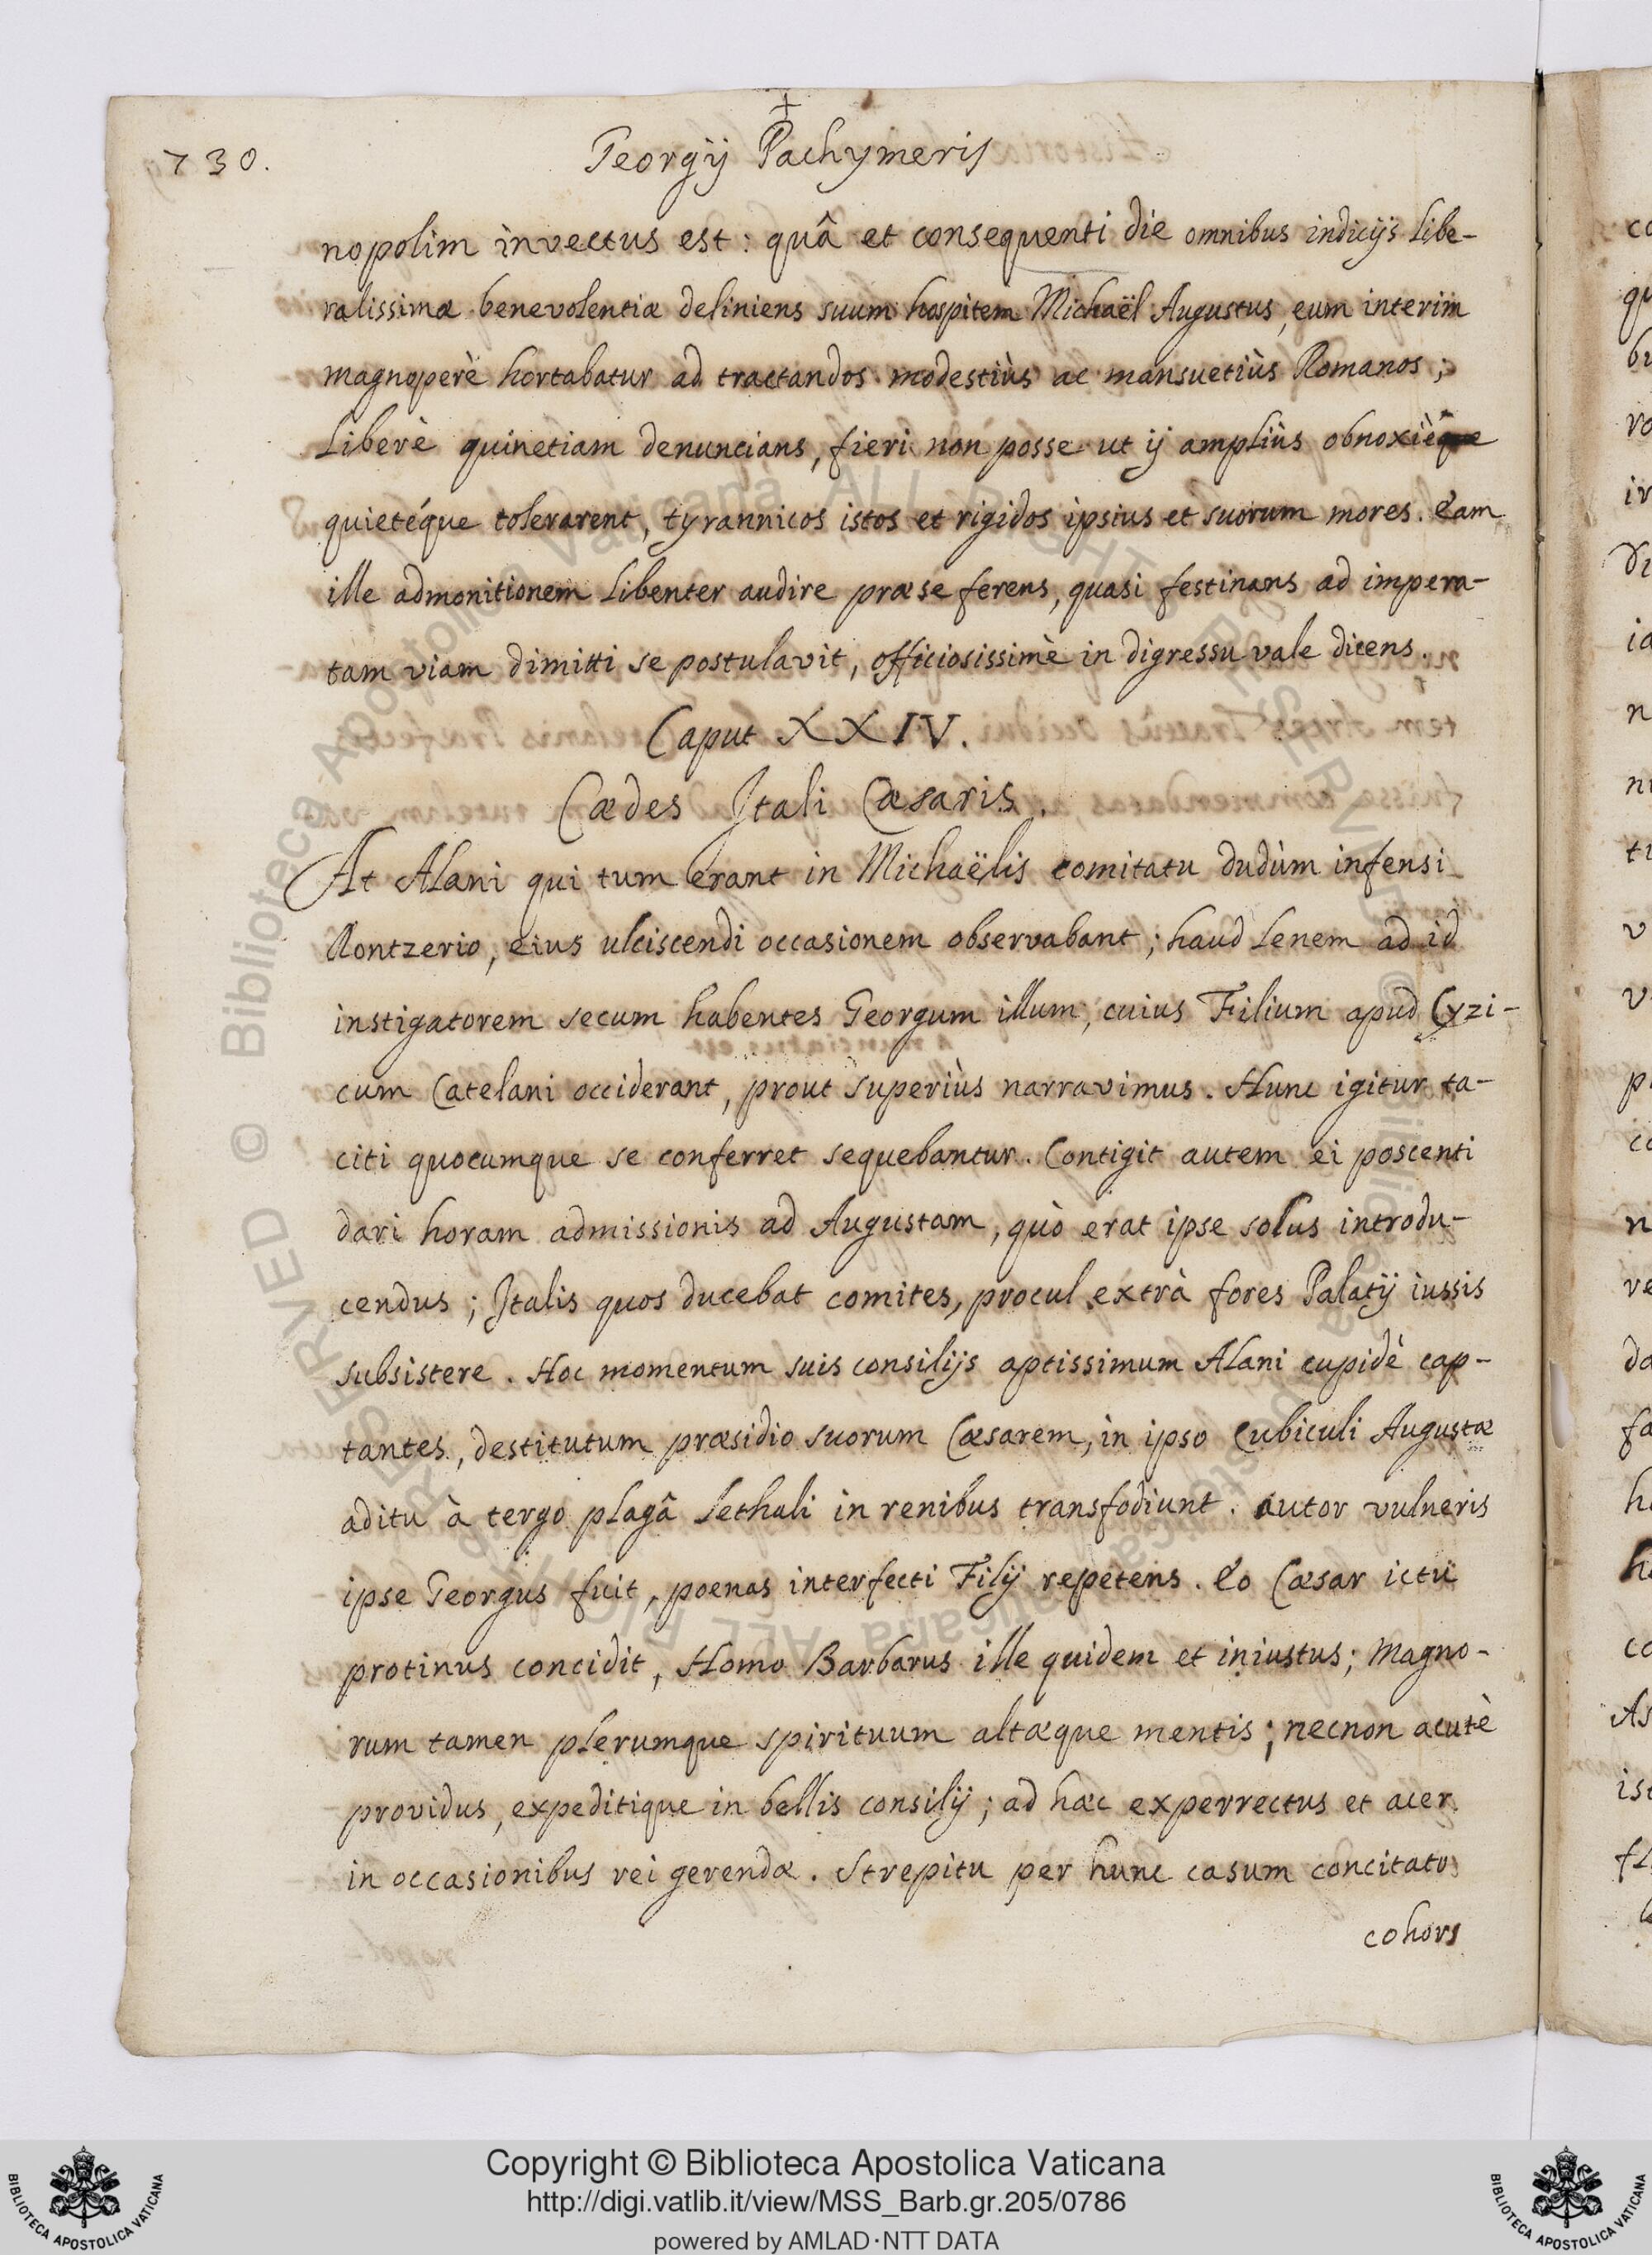 730.
Georgÿ Pachymeris
nopolim invectus est: quâ et consequenti die omnibus indicÿs libe-
ralissimæ benevolentiæ deliniens suum hospitem Michaël Augustus, eum interim
magnoperè hortabatur ad tractandos modestiùs ac mansuetiùs Romanos;
Liberè quinetiam denuncians, fieri non posse ut ÿ ampliùs obnoxiè
quietéque tolerarent, tyrannicos istos et rigidos ipsius et suorum mores. Eam
ille admonitionem libenter audire præ se ferens, quasi festinans ad impera-
tam viam dimitti se postulavit, officiosissimè in digressu vale dicens.
Caput XXIV.
Cædes Itali Cæsaris.
At Alani qui tum erant in Michaëlis comitatu dudùm infensi
Rontzerio, eius ulciscendi occasionem observabant; haud lenem ad id
instigatorem secum habentes Georgum illum, cuius Filium apud Cyzi-
cum Catelani occiderant, prout superiùs narravimus. Hunc igitur ta-
citi quocumque se conferret sequebantur. Contigit autem ei poscenti
dari horam admissionis ad Augustam, quò erat ipse solus introdu-
cendus; Italis quos ducebat comites, procul extrà fores Palatÿ iussis
subsistere. Hoc momentum suis consilÿs aptissimum Alani cupidè cap-
tantes, destitutum præsidio suorum Cæsarem, in ipso Cubiculi Augustæ
aditu à tergo plagâ lethali in renibus transfodiunt. autor vulneris
ipse Georgus fuit, poenas interfecti Filÿ repetens. Eo Cæsar ictu
protinus concidit, Homo Barbarus ille quidem et iniustus; Magno-
rum tamen plerumque spirituum altæque mentis; necnon acutè
providus, expeditique in bellis consilÿ; ad hæc experrectus et acer
in occasionibus rei gerendæ. Strepitu per hunc casum concitato
cohors
Copyright © Biblioteca Apostolica Vaticana
http://digi.vatlib.it/view/MSS_Barb.gr.205/0786
powered by AMLAD·NTT DATA